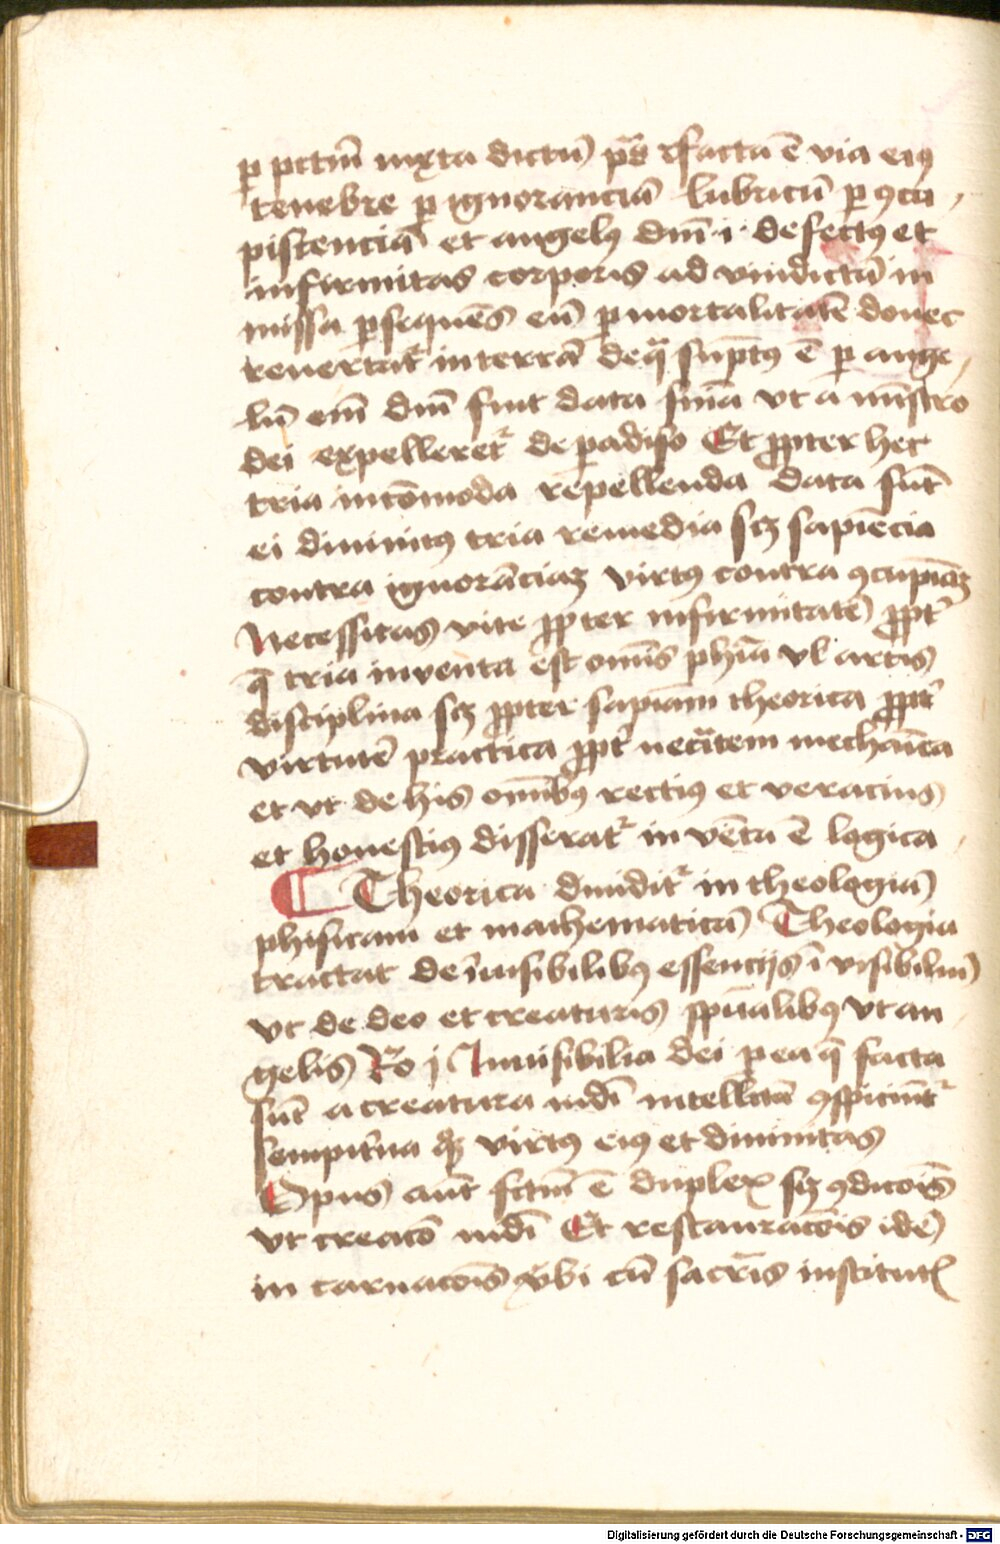 p pctm̄ iuxta dictū ps̄ Ifacta ē via eiꝰ
tenebre p ignoranciā lubricū p ꝯcu
piscenciā et angelꝰ dm̄ ·i· defectꝰ et
infirmitas corporis ad vindictā in
missa psequēs eū p mortalitatē donec
reuertat᷑ in terrā de qͣ sūptꝰ ē p ange
lū em̄ dm̄ fuit data sn̄ia vt a mīstro
dei expelleret᷑ de padiso Et ꝓpter hec
tria incōmoda repellenda data sūt
ei diuinitꝰ tria remedia scꝫ sapiēcia
contra ignorāciaꝫ virtꝰ contra ꝯcupiāꝫ
Necessitas vite ꝓpter infirmitatē ꝓpt᷑
q̄ tria inuenta est om̄is phīa vl artis
disciplina scꝫ ꝓpter sapīam theorica ꝓpt᷑
virtutē practica ꝓpt᷑ necͣitem mechāica
et vt de his om̄ibꝰ rectiꝰ et veracius
et honestiꝰ disserat᷑ in vēta ē logica
Theorica diuidit᷑ in theologiā
phisicam et mathematicā Theologia
tractat de īuisibilibꝰ essencijs ī visibiliū
vt de deo et creaturis spūalibꝰ vt an
gelis Ro j Inuisibilia dei p ea q̄ facta
sūt a creatura mdī intellcͣta ꝯspiciūt᷑
sempit᷑na qꝫ virtꝰ eiꝰ et diuinitas
Opus aūt sctm̄ ē duplex scꝫ ꝯdicōis
vt creacō mdī Et restauracōis idē
in carnacōis v̄bi cū sacrīs institut᷑
Digitalisierung gefördert durch die Deutsche Forschungsgemeinschaft - DFG